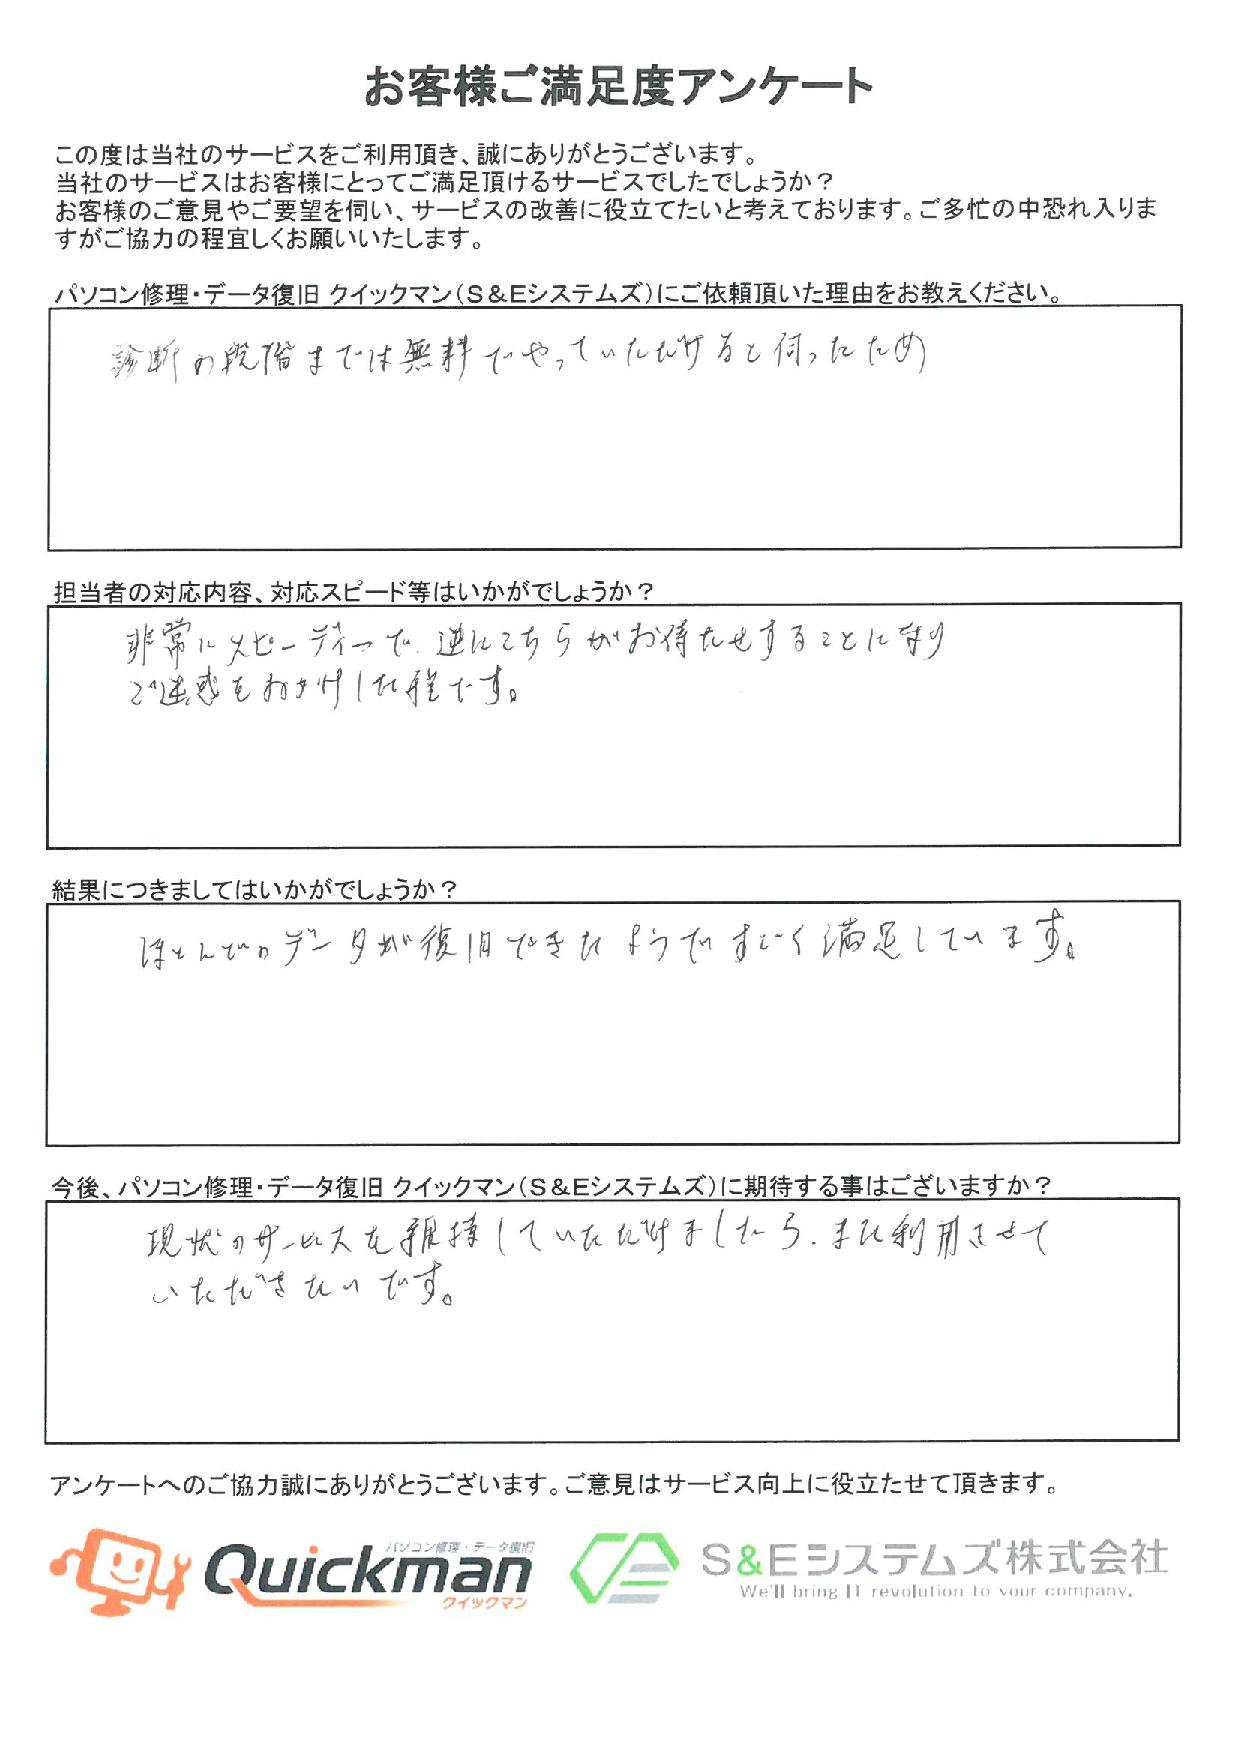 お客様ご満足度アンケート
この度は当社のサービスをご利用頂き、誠にありがとうございます。
当社のサービスはお客様にとってご満足頂けるサービスでしたでしょうか？
お客様のご意見やご要望を伺い、サービスの改善に役立てたいと考えております。ご多忙の中恐れ入りま
すがご協力の程宜しくお願いいたします。
パソコン修理・データ復旧 クイックマン（S＆Eシステムズ）にご依頼頂いた理由をお教えください。
診断の段階までは無料でやっていただけると伺ったため
担当者の対応内容、対応スピード等はいかがでしょうか？
非常にスピーディーで、逆にこちらがお待たせすることになり
ご迷惑をおかけした程です。
結果につきましてはいかがでしょうか？
ほとんどのデータが復旧できたようですごく満足しています。
今後、パソコン修理・データ復旧 クイックマン（S＆Eシステムズ）に期待する事はございますか？
現状のサービスを維持していただけましたら、また利用させて
いただきたいです。
アンケートへのご協力誠にありがとうございます。ご意見はサービス向上に役立たせて頂きます。
パソコン修理・データ復旧
Quickman
クイックマン
S&Eシステムズ株式会社
We'll bring IT revolution to your company.